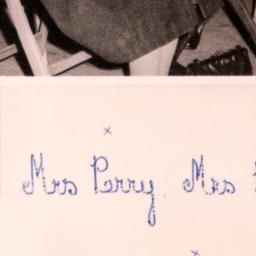 x
Mrs Perry, Mrs
x